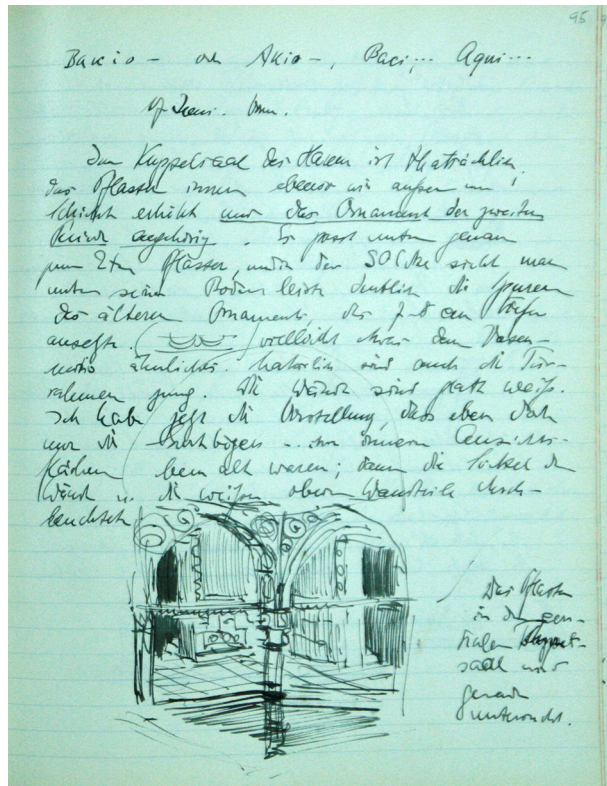 95
Baccio – od Akio –, Baci... Aqui...
Im Kuppelsaal des Harem ist thatsächlich
das Pflaster innen ebenso wie außen um 1
Schicht erhöht und das Ornament der zweiten
Periode angehörig. Es passt unten genau
zum 2ten Pflaster, und in der Socke sieht man
unten seine Bodenleiste deutlich die Spuren
des älteren Ornaments, das 7–8 cm tiefer
ansetzte. vielleicht etwas dem Vasen-
motiv ähnliches. Natürlich sind auch die Tür-
rahmen jung. Die Wände sind glatt weiß.
Ich habe jetzt die Vorstellung, dass eben doch
nur die innern Ansichts-
flächen bemalt waren; denn die Sockel der
Wände u. die weißen obern Wandteile
Das Pflaster
in dem zen-
tralen Kuppel-
saal wird
gerade
untersucht.